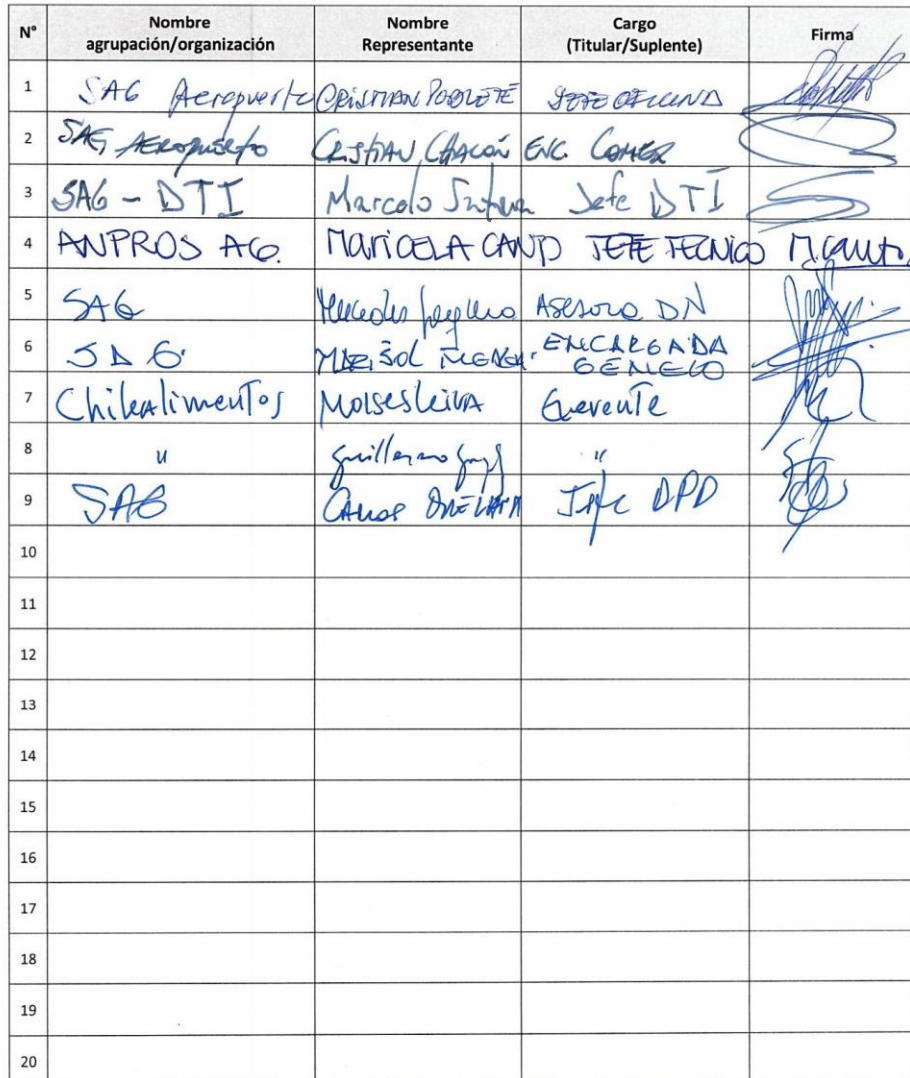 N° Nombre agrupación/organización Nombre Representante Cargo (Titular/Suplente) Firma
1 SAG Aeropuerto CRISTIAN POBLETE JEFE OFICINA
2 SAG AEROPUERTO CRISTIAN CHACÓN ENC. COMEX
3 SAG - DTI Marcelo Jefe DTI
4 ANPROS AG. MARICELA CANTO JEFE TECNICO M.Canto.
5 SAG Mercedes ASESORA DN
6 SAG MARISOL ENCARGADA GENERO
7 Chilealimentos Moises Leiva Gerente
8 " Guillermo "
9 SAG CARLOS ORELLANA Jefe DPD
10
11
12
13
14
15
16
17
18
19
20